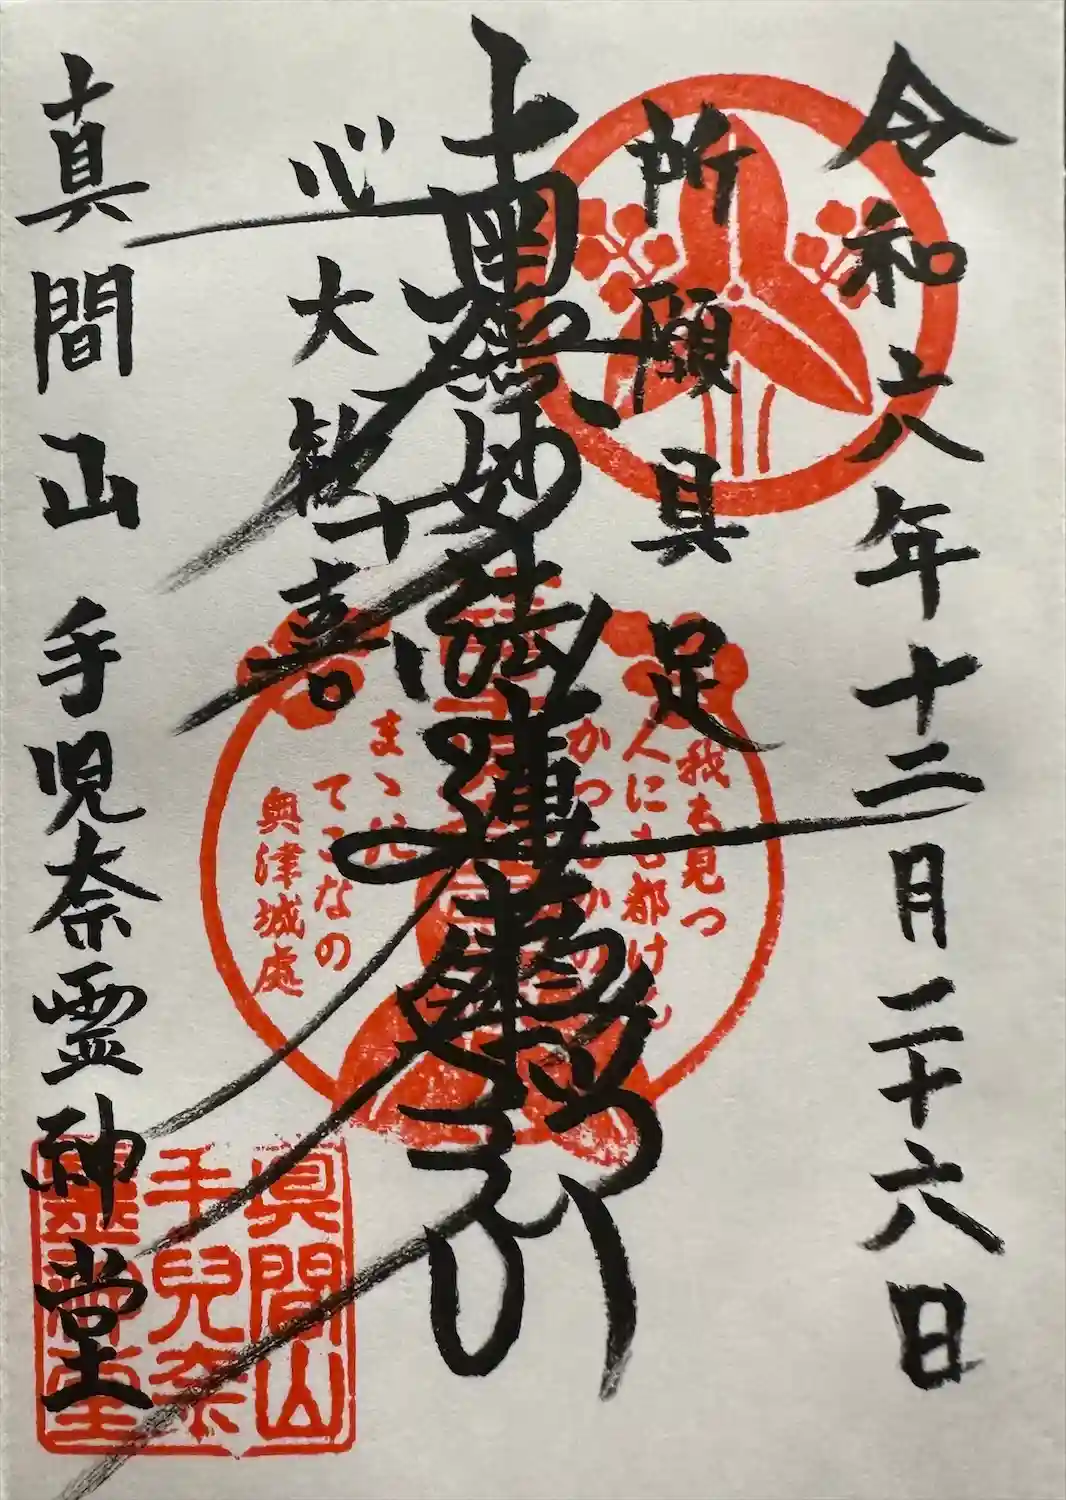 令和六年十二月二十六日
所願具足
南無妙法蓮華経
心大歓喜
真間山手児奈霊神堂
我も見つ
人にも都げ
かつしかの
まゝ能
てこなの
奥津城處
真間山
手兒奈
靈神堂